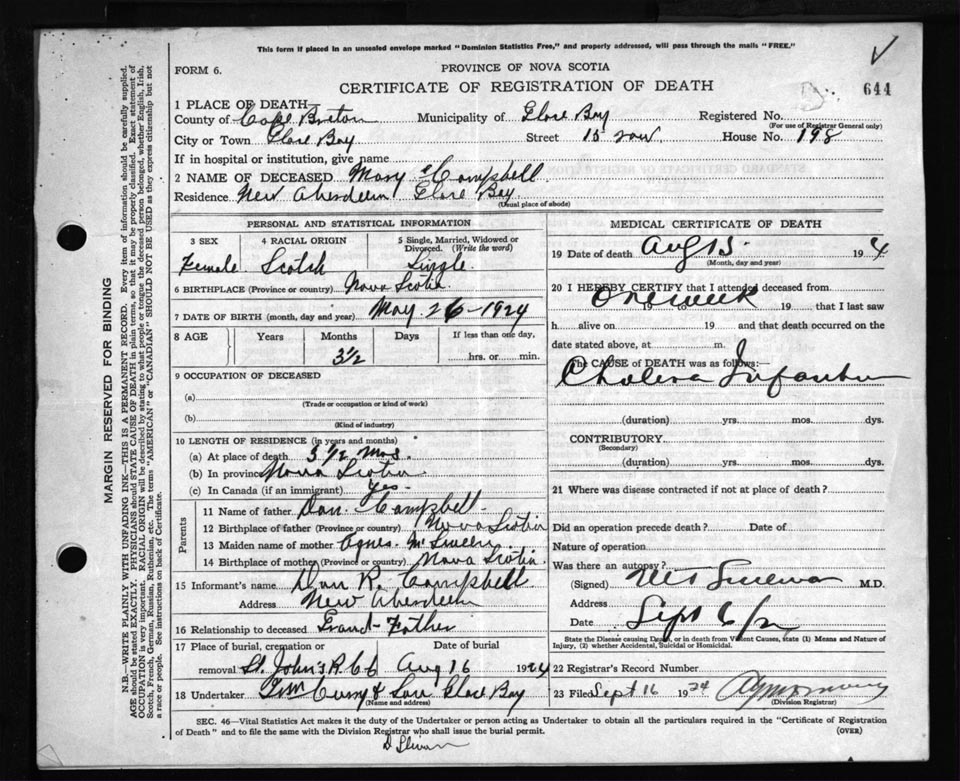 This form if placed in an unsealed envelope marked "Dominion Statistics Free," and properly addressed, will pass through the mails "FREE."
FORM 6.
PROVINCE OF NOVA SCOTIA
CERTIFICATE OF REGISTRATION OF DEATH
644
1 PLACE OF DEATH
County of Cape Breton Municipality of Glace Bay Registered No.
(For use of Registrar General only)
City or Town Glace Bay Street 15 row House No. 198
If in hospital or institution, give name
2 NAME OF DECEASED Mary Campbell
Residence New Aberdeen Glace Bay
(Usual place of abode)
PERSONAL AND STATISTICAL INFORMATION
3 SEX 4 RACIAL ORIGIN 5 Single, Married, Widowed or Divorced. (Write the word)
Female Scotch Single
6 BIRTHPLACE (Province or country) Nova Scotia
7 DATE OF BIRTH (month, day and year) May 26-1924
8 AGE Years Months Days If less than one day,
3½ hrs. or min.
9 OCCUPATION OF DECEASED
(a)
(Trade or occupation or kind of work)
(b)
(Kind of industry)
10 LENGTH OF RESIDENCE (in years and months)
(a) At place of death 3 1/2 mos.
(b) In province Nova Scotia
(c) In Canada (if an immigrant) Yes
Parents
11 Name of father Dan Campbell
12 Birthplace of father (Province or country) Nova Scotia
13 Maiden name of mother Agnes
14 Birthplace of mother (Province or country) Nova Scotia
15 Informant's name Dan R. Campbell
Address New Aberdeen
16 Relationship to deceased Grand-Father
17 Place of burial, cremation or removal Date of burial
St. John's R.C. Aug 16 1924
18 Undertaker Curry & Son Glace Bay
(Name and address)
MEDICAL CERTIFICATE OF DEATH
19 Date of death Aug 15 1924
(Month, day and year)
20 I HEREBY CERTIFY that I attended deceased from
One week 19 to 19 that I last saw
h alive on 19 and that death occurred on the
date stated above, at m.
The CAUSE of DEATH was as follows:—
Cholera Infantum
(duration) yrs. mos. dys.
CONTRIBUTORY
(Secondary)
(duration) yrs. mos. dys.
21 Where was disease contracted if not at place of death?
Did an operation precede death? Date of
Nature of operation
Was there an autopsy?
(Signed) M.D.
Address
Date Sept 6/
State the Disease causing Death, or in death from Violent Causes, state (1) Means and Nature of Injury, (2) whether Accidental, Suicidal or Homicidal.
22 Registrar's Record Number
23 Filed Sept 16 1924
(Division Registrar)
SEC. 46—Vital Statistics Act makes it the duty of the Undertaker or person acting as Undertaker to obtain all the particulars required in the "Certificate of Registration
of Death" and to file the same with the Division Registrar who shall issue the burial permit. (OVER)
MARGIN RESERVED FOR BINDING
N.B.—WRITE PLAINLY WITH UNFADING INK—THIS IS A PERMANENT RECORD. Every item of information should be carefully supplied.
AGE should be stated EXACTLY. PHYSICIANS should STATE CAUSE OF DEATH in plain terms, so that it may be properly classified. Exact statement of
OCCUPATION is very important. RACIAL ORIGIN will be described by stating to what people or tongue the deceased person belonged, whether English, Irish,
Scotch, French, German, Russian, Ruthenian, etc. The terms "AMERICAN" or "CANADIAN" SHOULD NOT BE USED as they express citizenship but not
a race or people. See instructions on back of Certificate.